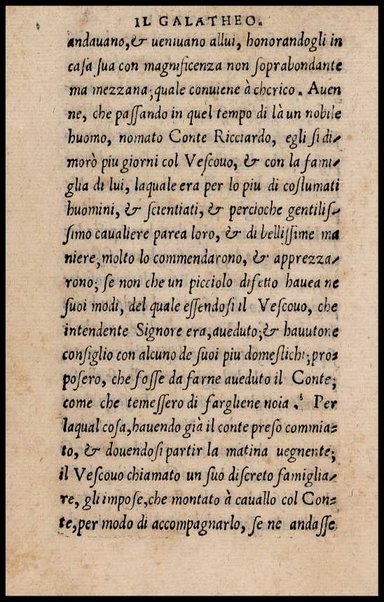 IL GALATHEO.
andauano, & ueniuano allui, honorandogli in
caſa ſua con magnificenza non ſoprabondante
ma mezzana; quale conuiene à cherico. Auen
ne, che paſſando in quel tempo di là un nobile
huomo, nomato Conte Ricciardo, egli ſi di⸗
morò piu giorni col Veſcouo, & con la fami⸗
glia di lui, laquale era per lo piu di coſtumati
huomini, & ſcientiati, & percioche gentiliſ⸗
ſimo caualiere parea loro, & di belliſſime ma
niere, molto lo commendarono, & apprezza⸗
rono; ſe non che un picciolo difetto hauea ne
ſuoi modi, del quale eſſendoſi il Veſcouo, che
intendente Signore era, aueduto; & hauutone
conſiglio con alcuno de ſuoi piu domeſtichi; pro⸗
poſero, che foſſe da farne aueduto il Conte;
come che temeſſero di fargliene noia. Per
laqual coſa, hauendo già il conte preſo commia⸗
to, & douendoſi partir la matina uegnente;
il Veſcouo chiamato un ſuo diſcreto famiglia⸗
re, gli impoſe, che montato à cauallo col Con⸗
te, per modo di accompagnarlo, ſe ne andaſſe